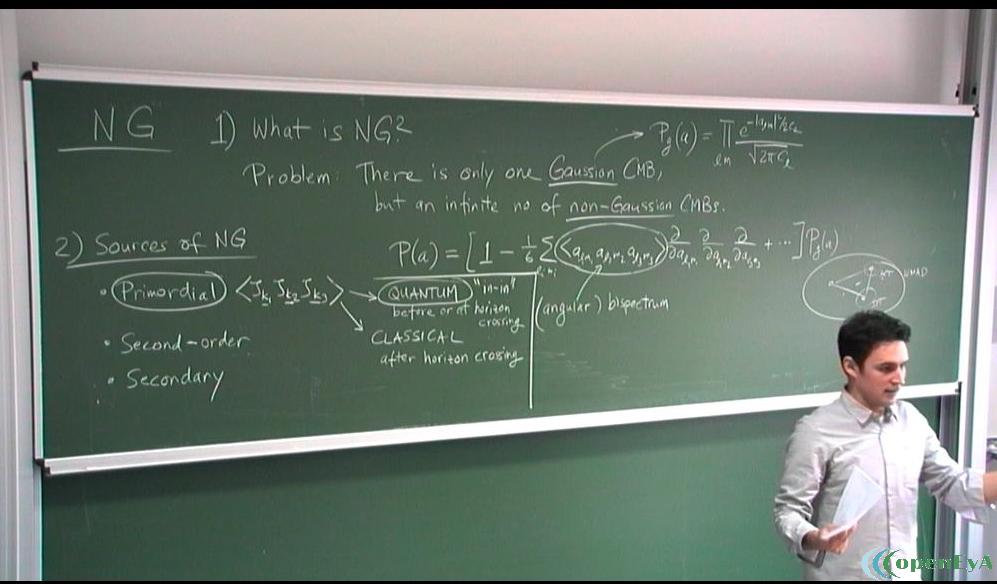 NG
1) What is NG?
P_g(a) = ∏_{ℓm} e^{-|a_{ℓm}|²/2C_ℓ} / √(2πC_ℓ)
Problem: There is only one Gaussian CMB,
but an infinite no of non-Gaussian CMBs.
2) Sources of NG
P(a) = [1 - 1/6 Σ ⟨a_{ℓ₁m₁} a_{ℓ₂m₂} a_{ℓ₃m₃}⟩ ∂/∂a_{ℓ₁m₁} ∂/∂a_{ℓ₂m₂} ∂/∂a_{ℓ₃m₃} + ...] P_g(a)
• Primordial ⟨ζ_{k₁} ζ_{k₂} ζ_{k₃}⟩
QUANTUM "in-in"
before or at horizon
crossing
(angular) bispectrum
CLASSICAL
after horizon crossing
• Second-order
• Secondary
WMAP
openEyA